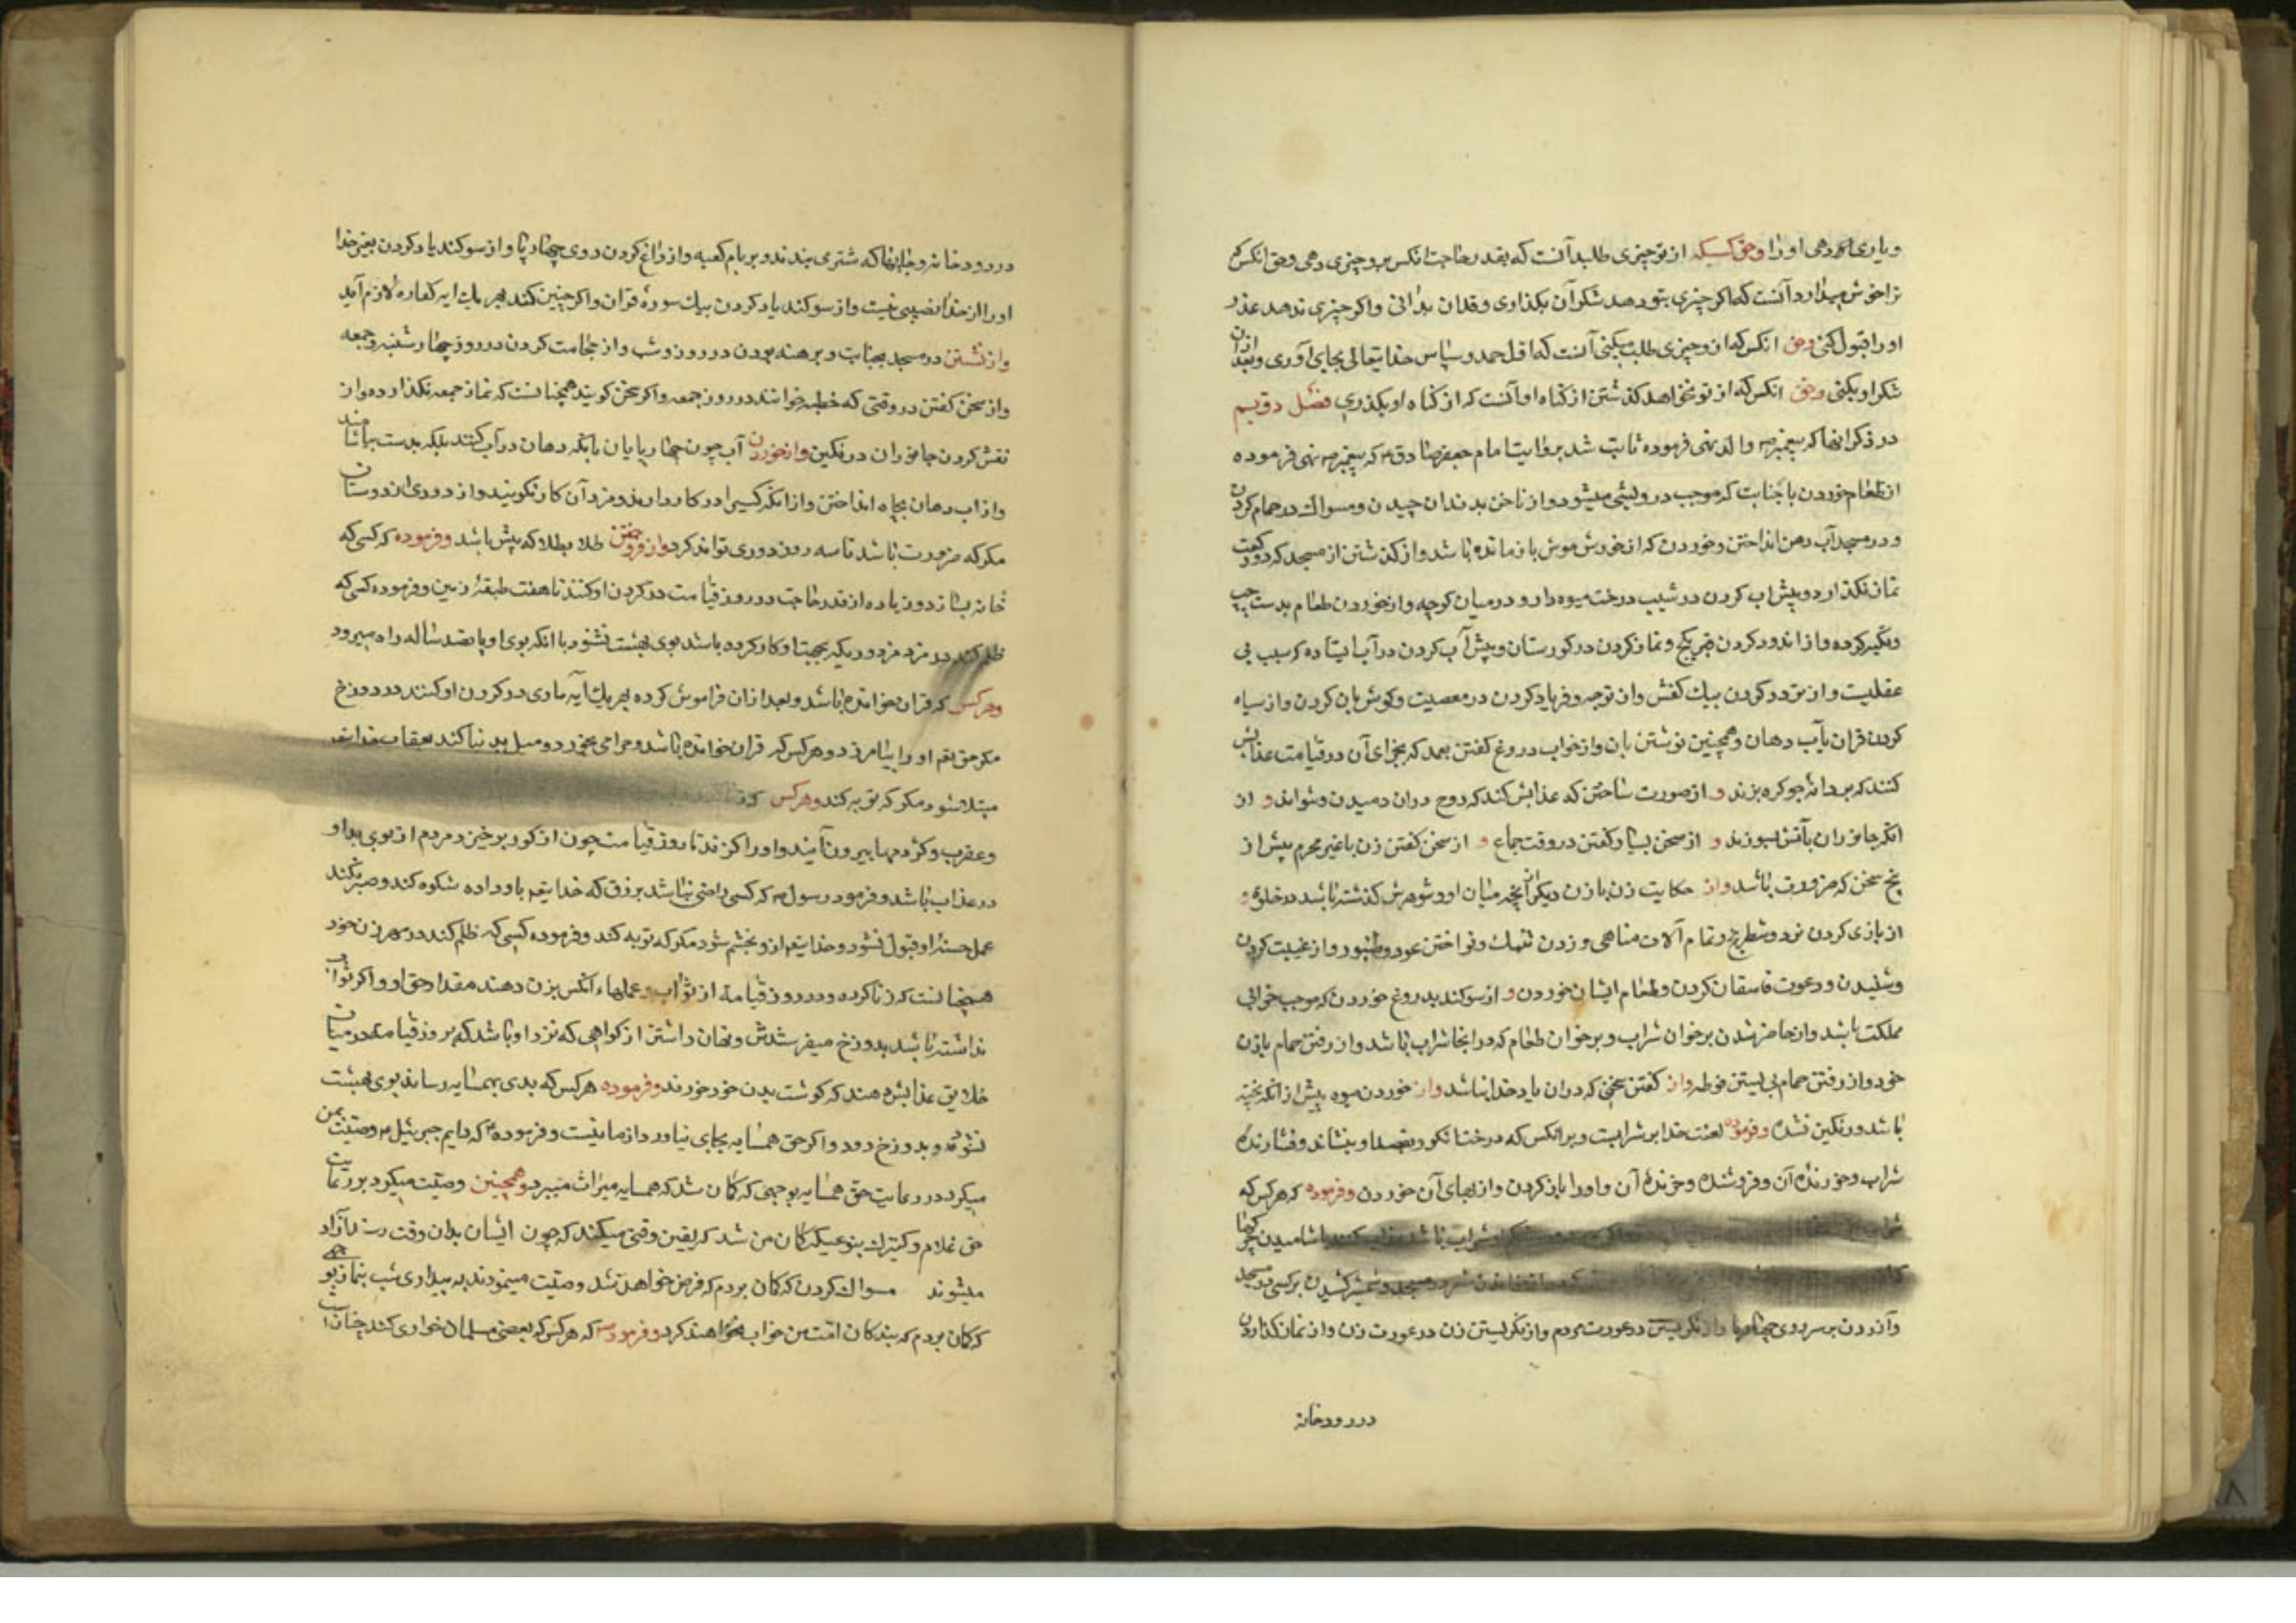 و یاری کردهی او را و حق کسیکه از تو چیزی طلبد آنست که بقدر حاجت انکس برو چیزی دهی و حق انکس که
ترا خوش میدارد آنست که اگر چیزی بتو دهد شکر آن بکذاری و قدر آن بدانی و اکر چیزی ندهد عذر
او را قبول کنی و حق انکس که از و چیزی طلب میکنی آنست که اول حمد و سپاس خدایتعالی بجای آوری و بعد از آن
شکر او بکنی و حق انکس که از تو خواهد کذشتن از کناه او آنست که از کناه او بکذری فصل دویم
در ذکر انها که پیغمبر ص و اله نهی فرموده ثابت شد بروایت امام جعفر صادق ع که پیغمبر ص نهی فرموده
از طعام خوردن با جنابت که موجب درویشی میشود و از ناخن بدندان چیدن و مسواک در حمام کردن
و در مسجد آب دهن انداختن و خوردن که از خورش موش باز مانده باشد و از کذشتن از مسجد که دو رکعت
نماز نکذارد و پیش اب کردن در شیب درخت میوه دار و در میان کوچه و از خوردن طعام بدست چپ
و تکیه کرده و از اندود کردن قبر بکچ و نماز کردن در کورستان و پیش آب کردن در آب ایستاده که سبب بی
عقلیست و از تردد کردن بیک کفش و از نوحه و فریاد کردن در معصیت و کوش بان کردن و از سیاه
کردن قران بآب دهان و همچنین نوشتن بان و از خواب دروغ کفتن بعمد که بجزای آن در قیامت عذابش
کنند که بر دانه جو کره بزند و از صورت ساختن که عذابش کنند که روح دران دمیدن و نتواند و از
انکه جانوران بآتش بسوزند و از سخن بسیار کفتن در وقت جماع و از سخن کفتن زن با غیر محرم بیش از
پنج سخن که ضرورت باشد و از حکایت زن با زن دیکر از آنچه میان او و شوهرش کذشته باشد در خلوة و
از بازی کردن نرد و شطرنج و تمام آلات مناهی و زدن تنبک و نواختن عود و طنبور و از غیبت کردن
و شنیدن و دعوت فاسقان کردن و طعام ایشان خوردن و از سوکند بدروغ خوردن که موجب خرابی
مملکت باشد و از حاضر شدن بر خوان شراب و بر خوان طعام که در انجا شراب باشد و از رفتن حمام با زن
خود و از رفتن حمام بی بستن فوطه و از کفتن سخنی که دران یاد خدا نباشد و از خوردن میوه پیش از انکه پخته
باشد و رنکین نشده و فرموده لعنت خدا بر شرابست و بر انکس که درخت انکور بقصد او بنشاند و فشارنده
شراب و خورنده آن و فروشنده و خرنده آن و او را بار کردن و از بهای آن خوردن و فرموده که هر کس که
شراب باشد باشامیدن
شعر در مسجد و شمشیر کشیدن بر کسی در مسجد
و آزردن بر سر روی چهارپا و از نکریستن در عورت مردم و از نکریستن زن در عورت زن و از نماز کذاردن
در رودخانه
در رودخانه و جایها که شتری بندند و بر بام کعبه و از داغ کردن روی چهارپا و از سوکند یاد کردن بغیر خدا
او را از خدا نصیبی نیست و از سوکند یاد کردن بیک سوره قران و اکر چنین کند بهر یک ایه کفاره لازم آید
و از نشستن در مسجد بجنابت و برهنه بودن در روز و شب و از حجامت کردن در روز چهارشنبه و جمعه
و از سخن کفتن در وقتی که خطبه خوانند در روز جمعه و اکر سخن کویند همچنانست که نماز جمعه نکذارده و از
نقش کردن جانوران در نکین و از خوردن آب چون چهارپایان بانکه دهان در آب کنند بلکه بدست بیاشامند
و از اب دهان بچاه انداختن و از انکه کسیرا در کار دارند و مزد آن کار نکویند و از دوری از دوستان
مکر که ضرورت باشد تا سه روز دوری تواند کرد و از فروختن طلا بطلا که بیش باشد و فرموده که کسی که
خانه بسازد و زیاده از قدر حاجت در روز قیامت در کردن او کنند تا هفت طبقه زمین و فرموده کسی که
ظلم کند در مزد مزدور یکه بجهت او کار کرده باشد بوی بهشت نشنود با انکه بوی او پانصد ساله راه میرود
و هر کس که قران خوانده باشد و بعد از ان فراموش کرده بهر یک آیه ماری در کردن او کنند در دوزخ
مکر حق تعم او را بیامرزد و هر کس که قران خوانده باشد و حرامی بخورد و میل بدنیا کند بعقاب خدایتعم
مبتلا شود مکر که توبه کند و هر کس که
و عقرب و کژدمها بیرون آیند و او را کزند تا روز قیامت چون از کور برخیزد مردم از بوی بد او
در عذاب باشد و فرمود رسول ص که کسی راضی نباشد برزق که خدایتعم باو داده شکوه کند و صبر نکند
عمل حسنه او قبول نشود و خدایتعم از و بخشم شود مکر که توبه کند و فرموده کسی که ظلم کند در مهر زن خود
همچنانست که زنا کرده و در روز قیامة از ثواب و عملهاء انکس بزن دهند مقدار حق او و اکر ثواب
نداشته باشد بدوزخ میفرستندش و نهان داشتن از کواهی که نزد او باشد که بروز قیامت در میان
خلایق عذابش دهند که کوشت بدن خود خورند و فرموده هر کس که بدی بهمسایه رساند بوی بهشت
نشنود و بدوزخ رود و اکر حق همسایه بجای نیاورد از ما نیست و فرموده که دایم جبرئیل ع وصیت بمن
میکرد در رعایت حق همسایه بوجهی که کمان شد که همسایه میراث میبرد و همچنین وصیت میکرد بر رعایت
حق غلام و کنیزک بنوعیکه کمان من شد که یقین وقتی میکند که چون ایشان بدان وقت رسند آزاد
میشوند مسواک کردن که کمان بردم که فرض خواهد شد و وصیت مینمودند به بیداری شب بنماز بوجهی
که کمان بردم که بندکان امت من خواب نخواهند کرد و فرموده که هر کس که بعضی مسلمان خواری کند چنانست